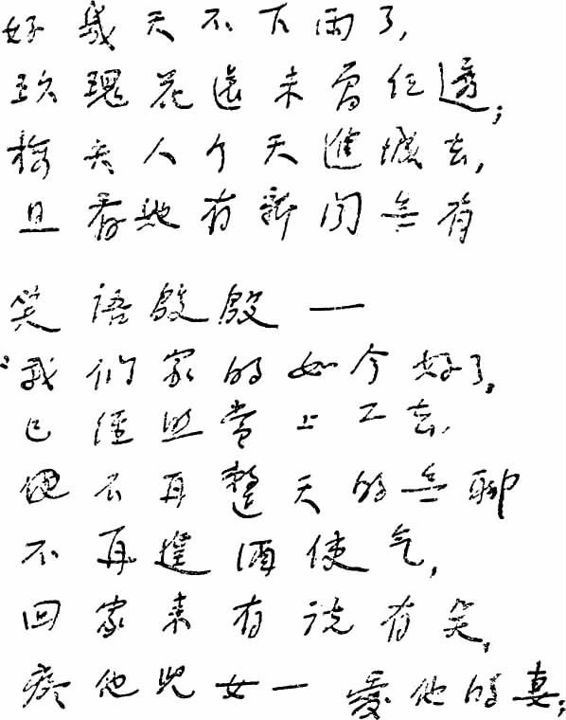 好几天不下雨了，
玫瑰花还未曾红透；
梅夫人今天进城去，
且看她有新闻無有
笑语殷殷——
“我们家的如今好了，
已经照常上工去，
他不再整天的無聊
不再逞酒使气，
回家来有说有笑，
疼他儿女——爱他的妻；